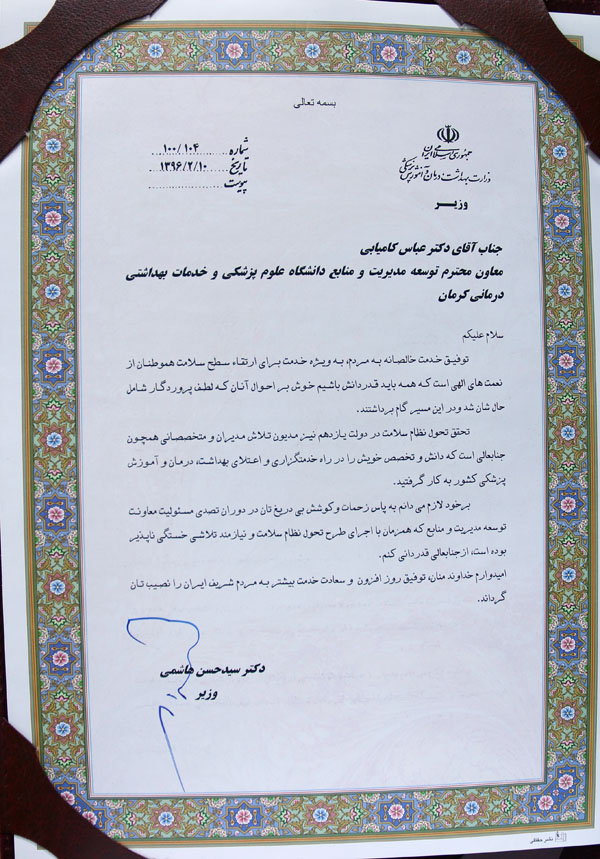 بسمه تعالی
جمهوری اسلامی ایران
وزارت بهداشت، درمان و آموزش پزشکی
وزیر
شماره ۱۰۰/۱۰۴
تاریخ ۱۳۹۶/۲/۱۰
پیوست
جناب آقای دکتر عباس کامیابی
معاون محترم توسعه مدیریت و منابع دانشگاه علوم پزشکی و خدمات بهداشتی
درمانی کرمان
سلام علیکم
توفیق خدمت خالصانه به مردم، به ویژه خدمت برای ارتقاء سطح سلامت هموطنان از
نعمت های الهی است که همه باید قدردانش باشیم خوش بر احوال آنان که لطف پروردگار شامل
حال شان شد و در این مسیر گام برداشتند.
تحقق تحول نظام سلامت در دولت یازدهم نیز مدیون تلاش مدیران و متخصصانی همچون
جنابعالی است که دانش و تخصص خویش را در راه خدمتگزاری و اعتلای بهداشت، درمان و آموزش
پزشکی کشور به کار گرفتید.
برخود لازم می دانم به پاس زحمات و کوشش بی دریغ تان در دوران تصدی مسئولیت معاونت
توسعه مدیریت و منابع که همزمان با اجرای طرح تحول نظام سلامت و نیازمند تلاشی خستگی ناپذیر
بوده است، از جنابعالی قدردانی کنم.
امیدوارم خداوند منان، توفیق روز افزون و سعادت خدمت بیشتر به مردم شریف ایران را نصیب تان
گرداند.
دکتر سیدحسن هاشمی
وزیر